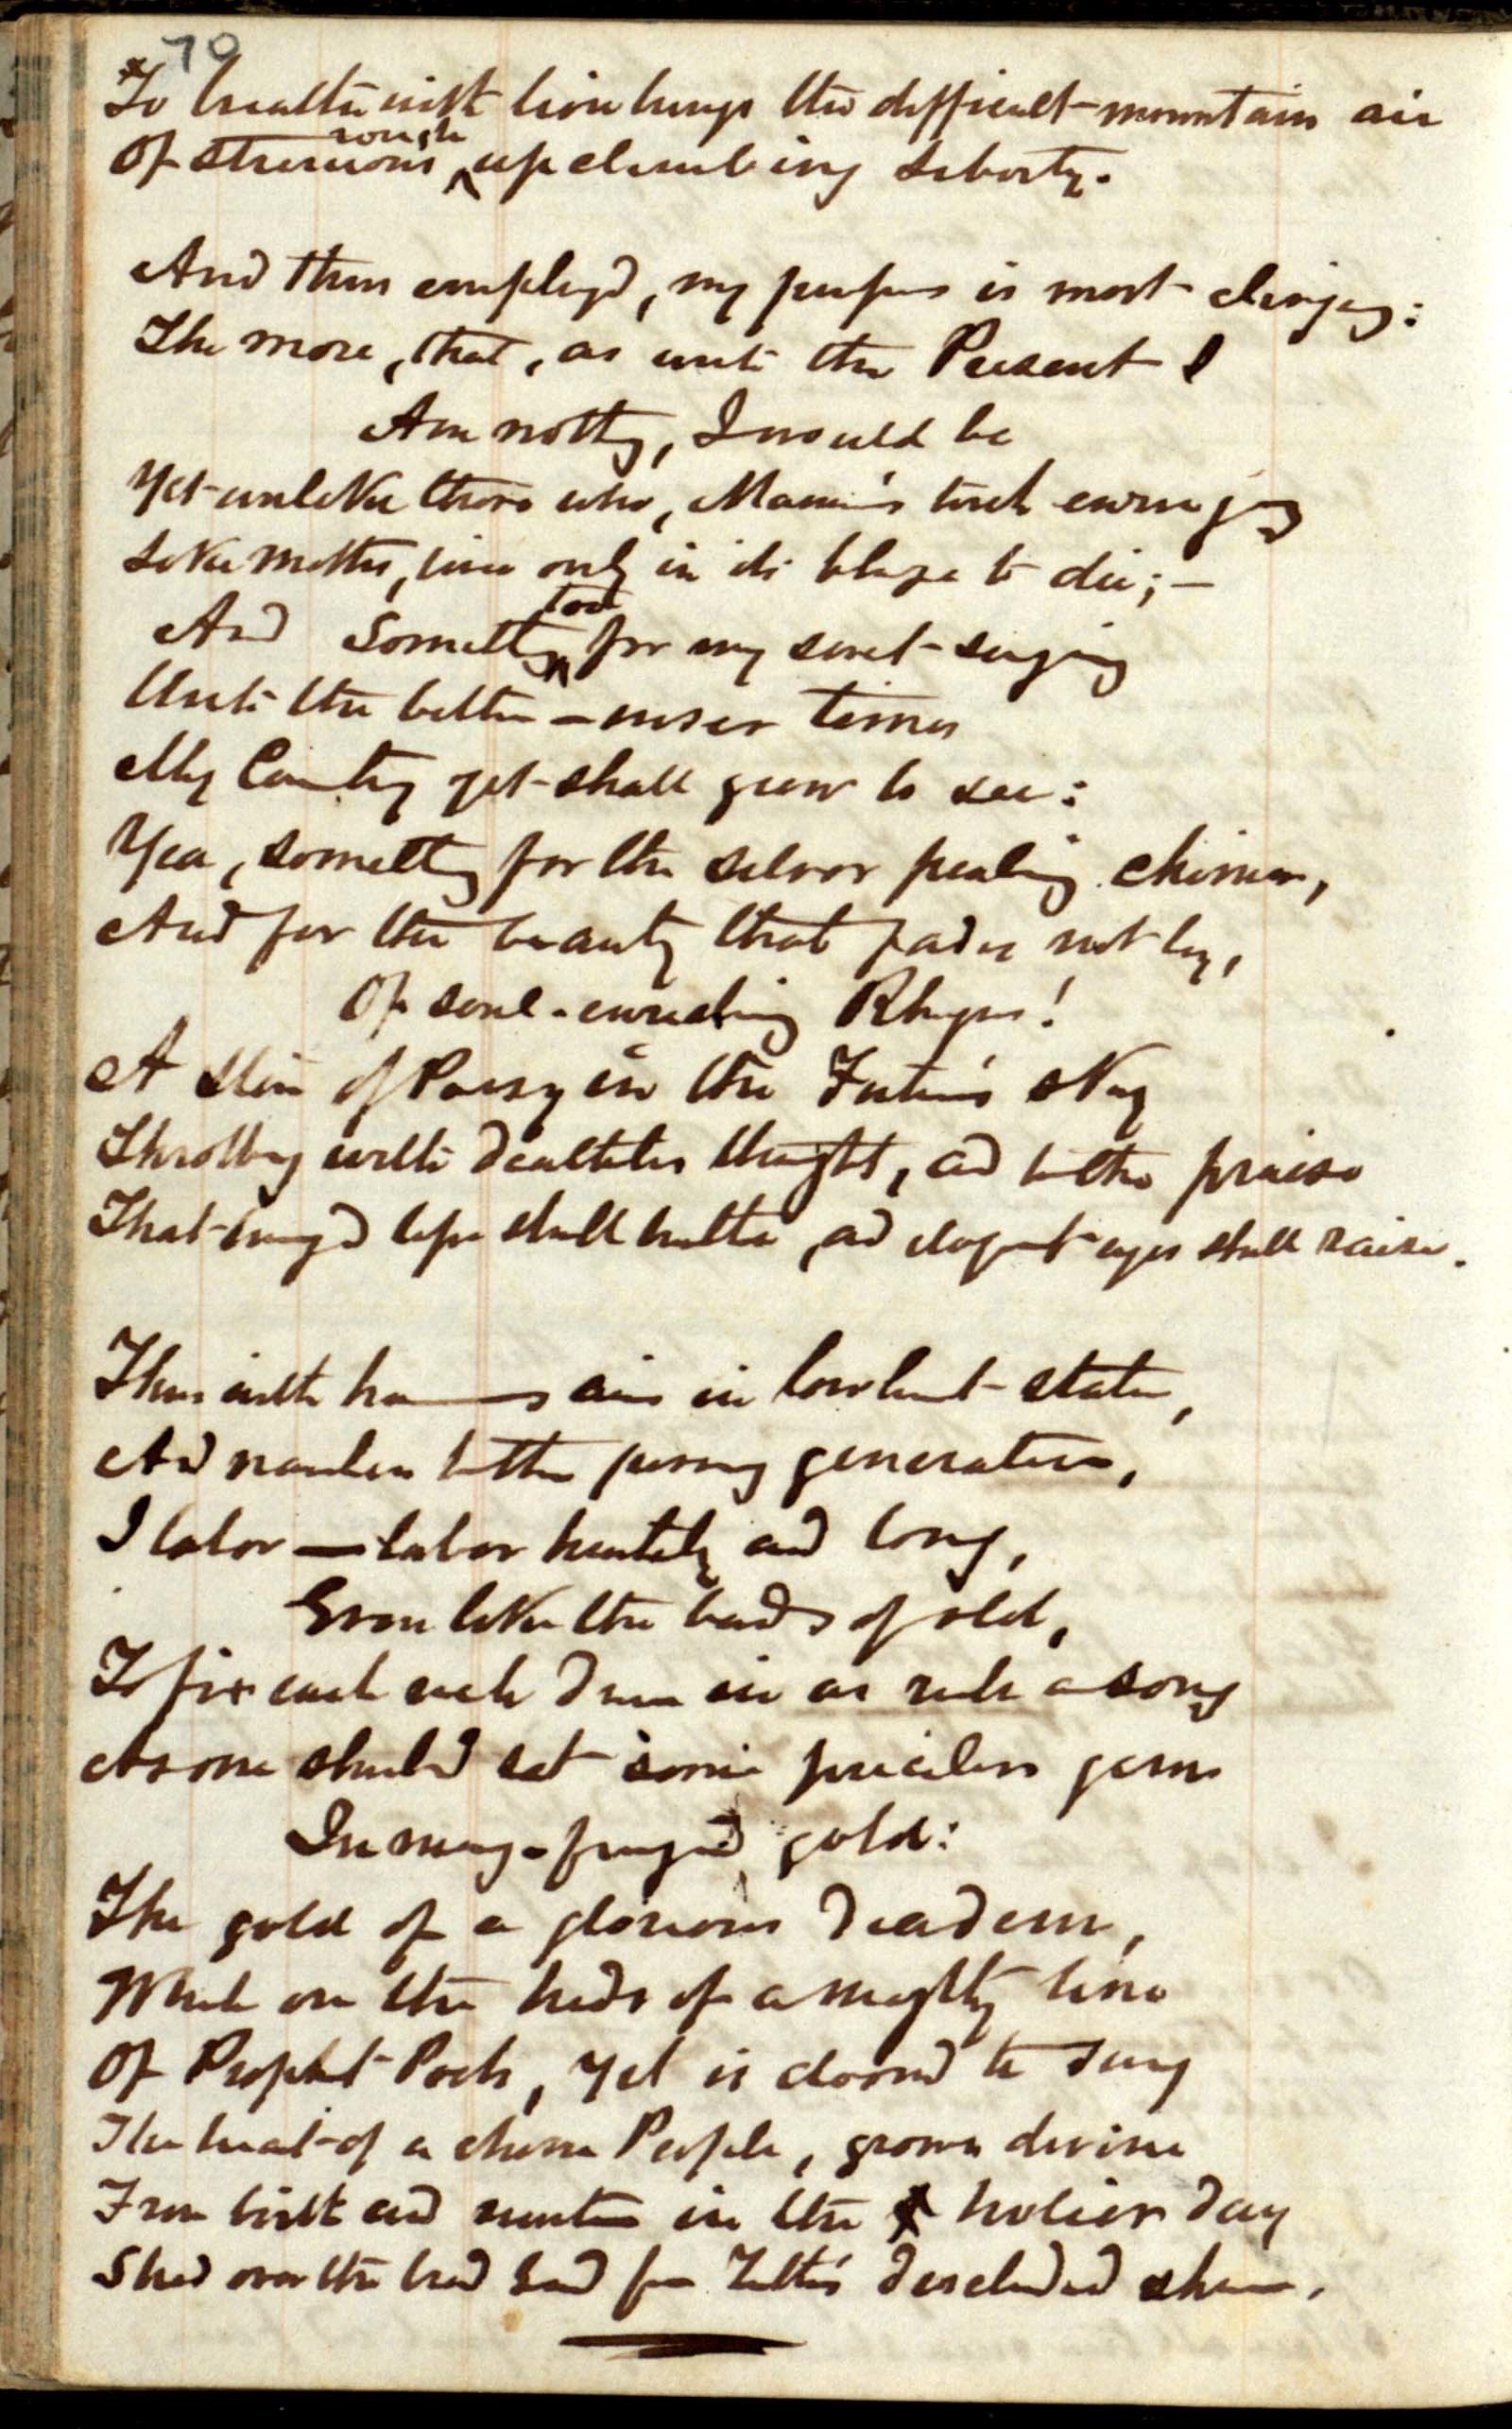 70
To breathe with lion lungs the difficult mountain air
rough
Of strenuous ^ upclimbing Liberty.
And thus employ'd, my purpose is most clinging:
The more, that, as unto the Present I
Am nothing, I would be
Yet unlike those who, Mammon's torch
Like moths, live only in its blaze to die;—
too
And Something ^ for my sweet-singing
Unto the better — wiser times
My Country yet shall grow to see:
Yea, something for the silver pealing chimes,
And for the beauty that fades not by,
Of soul-enriching Rhyme!
A star of Poesy in the Future's sky
Throbbing with deathless thought, and to the praise
That lips shall breathe, and eloquent eyes shall raise.
Thus with humans aim in lowliest state,
And nameless to the passing generation,
I labor — labor heartily and long,
Even like the bards of old,
To fix each rich dream in as rich a song
As one should set some priceless gems
In gold:
The gold of a glorious diadem,
Which on the heads of a mighty line
Of Prophet-Poets, yet is doomed to
The heart of a chosen People, grown divine
From birth and nurture in the holier day
Shed over the broad land from Truth's